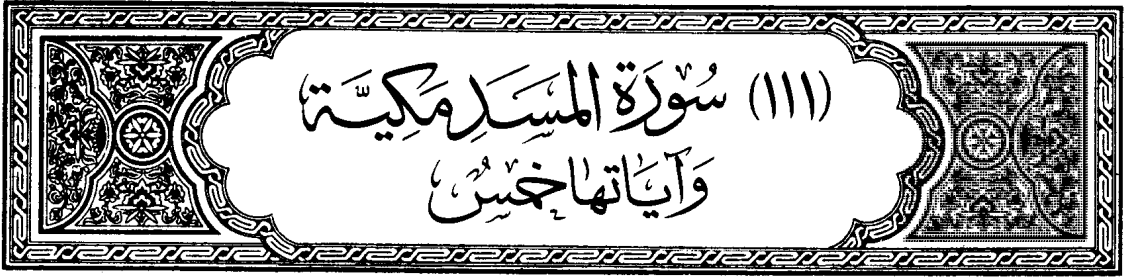 (١١١) سُورَةُ المَسَدِ مَكِيَّة
وَآيَاتهَا خَمسٌ